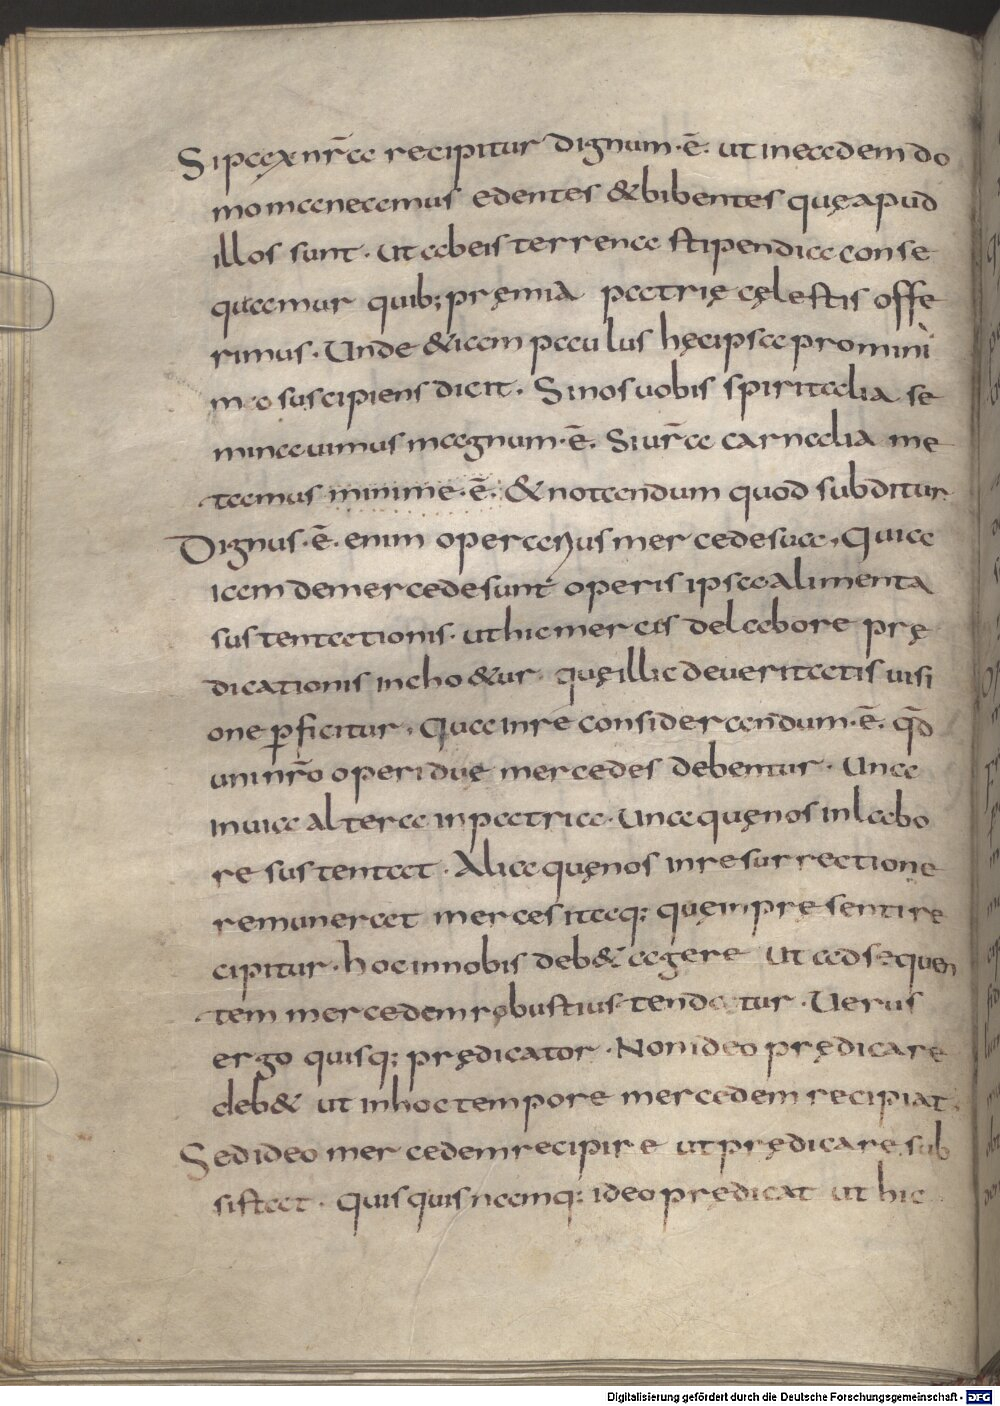 Si pax nr̄a recipitur dignum·ē· ut in eadem do
mo maneamus edentes & bibentes quę apud
illos sunt · ut ab eis terrena stipendia conse
quamur quib; pręmia patrię cęlestis offe
rimus · Unde &iam paulus hęc ipsa pro mini
mo suscipiens dicit · Si nos uobis spiritalia se
minauimus magnum·ē· Si ur̄a carnalia me
tamus minime·ē· & notandum quod subditur
Dignus·ē· enim operarius mercede sua, Quia
iam de mercede sunt operis ipsa alimenta
sustentationis · ut hic merces de labore prę
dicationis incho&ur quę illic de ueritatis uisi
one ꝑficitur, Qua in re considerandum·ē· qd̄
uni nr̄o operi duę mercedes debentur · Una
in uia altera in patria · Una quę nos in labo
re sustentat · Alia quę nos in resurrectione
remunerat merces itaq; quę in pręsenti re
cipitur · hoc in nobis deb& agere ut ad sequen
tem mercedem robustius tendatur · Uerus
ergo quisq; prędicator · Non ideo prędicare
deb& ut in hoc tempore mercedem recipiat ·
Sed ideo mercedem recipire ut prędicare sub
sistat · Quisquis namq; ideo prędicat ut hic
Digitalisierung gefördert durch die Deutsche Forschungsgemeinschaft - DFG